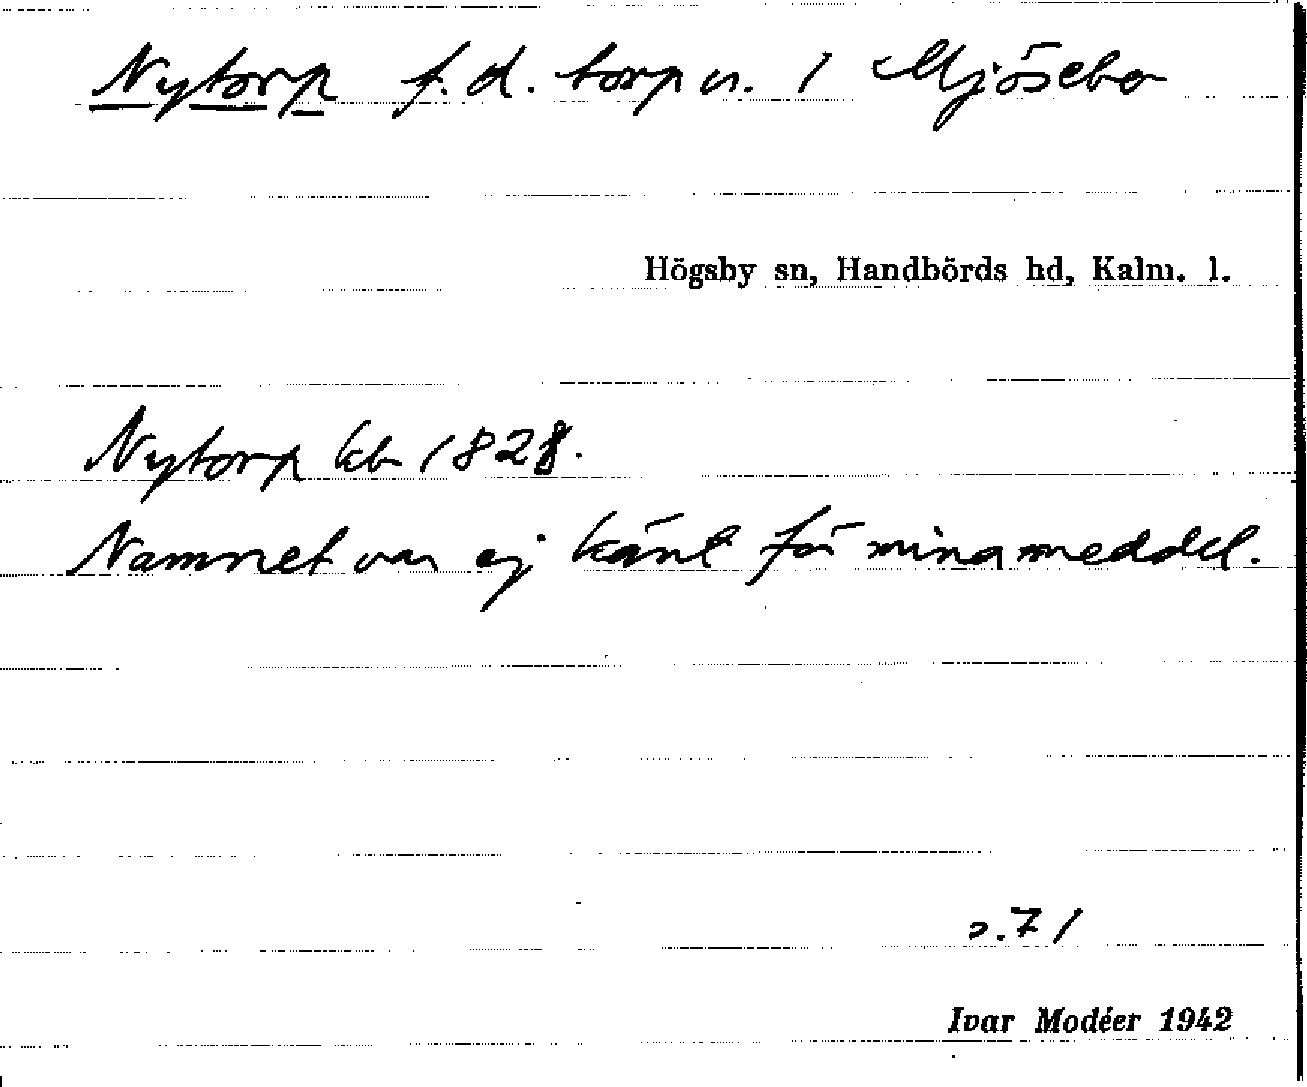 Nytorp f.d. torp u. 1 Mjösebo
Högsby sn, Handbörds hd, Kalm. l.
Nytorp kb 1828.
Namnet var ej känt för mina meddel.
s. 71
Ivar Modéer 1942